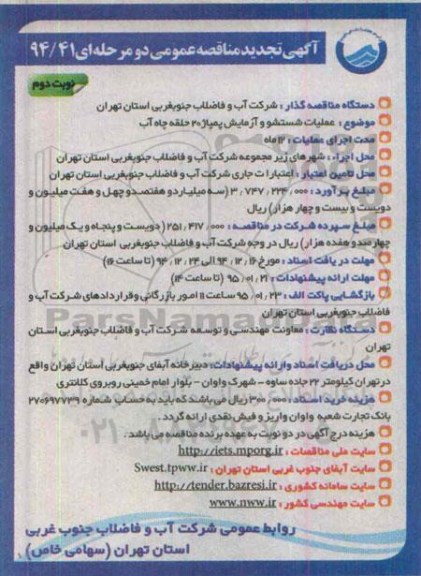 آگهی تجدید مناقصه عمومی دو مرحله‌ای ۹۴/۴۱
نوبت دوم
دستگاه مناقصه گذار : شرکت آب و فاضلاب جنوبغربی استان تهران
موضوع : عملیات شستشو و آزمایش پمپاژ ۲۰ حلقه چاه آب
مدت اجرای عملیات : ۱۲ ماه
محل اجراء : شهرهای زیر مجموعه شرکت آب و فاضلاب جنوبغربی استان تهران
محل تامین اعتبار : اعتبارات جاری شرکت آب و فاضلاب جنوبغربی استان تهران
مبلغ برآورد : ۳,۷۴۷,۲۲۴,۰۰۰ (سه میلیارد و هفتصد و چهل و هفت میلیون و
دویست و بیست و چهار هزار) ریال
مبلغ سپرده شرکت در مناقصه : ۲۵۱,۴۱۷,۰۰۰ (دویست و پنجاه و یک میلیون و
چهارصد و هفده هزار) ریال در وجه شرکت آب و فاضلاب جنوبغربی استان تهران
مهلت دریافت اسناد : مورخ ۹۴,۱۲,۱۶ الی ۹۴,۱۲,۲۴ (تا ساعت ۱۶)
مهلت ارائه پیشنهادات : ۹۵,۰۱,۲۱ (تا ساعت ۱۴)
بازگشایی پاکت الف : ۹۵,۰۱,۲۳ ساعت ۱۱ امور بازرگانی و قراردادهای شرکت آب و
فاضلاب جنوبغربی استان تهران
دستگاه نظارت : معاونت مهندسی و توسعه شرکت آب و فاضلاب جنوبغربی استان
تهران
محل دریافت اسناد و ارائه پیشنهادات : دبیرخانه آبفای جنوبغربی استان تهران واقع
در تهران کیلومتر ۲۲ جاده ساوه - شهرک واوان - بلوار امام خمینی روبروی کلانتری
هزینه خرید اسناد : ۳۰۰,۰۰۰ ریال می باشد که باید به حساب شماره ۲۷۰۶۹۷۷۳۹
بانک تجارت شعبه واوان واریز و فیش نقدی ارائه گردد.
هزینه درج آگهی در دو نوبت به عهده برنده مناقصه می باشد.
سایت ملی مناقصات : http://iets.mporg.ir
سایت آبفای جنوب غربی استان تهران : Swest.tpww.ir
سایت سامانه کشوری : http://tender.bazresi.ir
سایت مهندسی کشور : www.nww.ir
روابط عمومی شرکت آب و فاضلاب جنوب غربی
استان تهران (سهامی خاص)